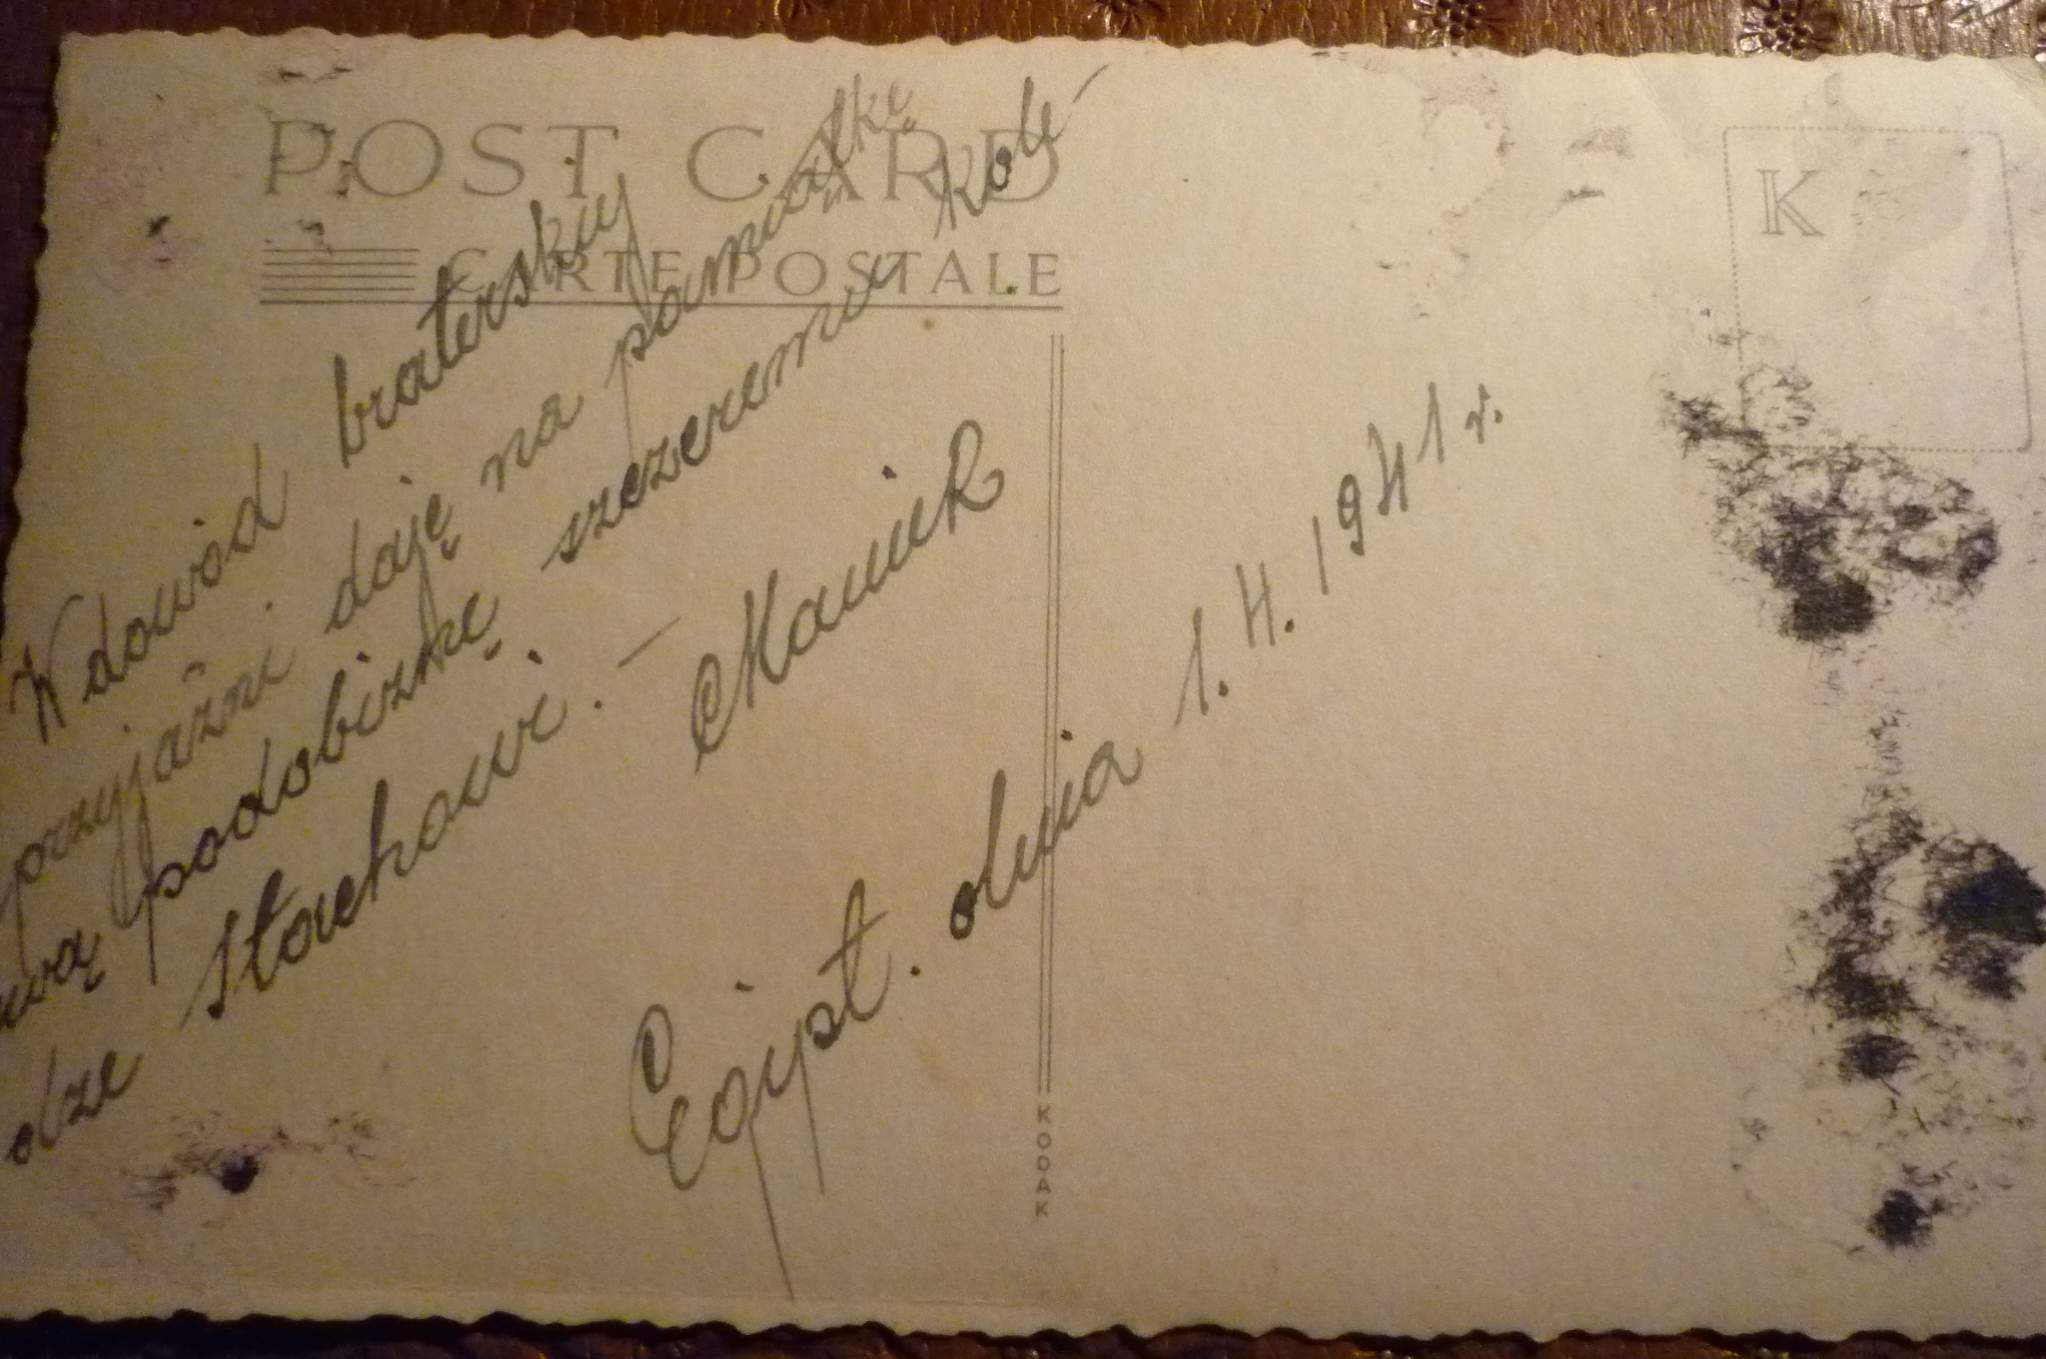 POST CARD
CARTE POSTALE
K
W dowód braterskiej
przyjaźni daję na pamiątkę
swą podobiznę szczeremu kole-
dze Stachowi. —
Maniek
Egipt. dnia 1. 4. 1941 r.
KODAK